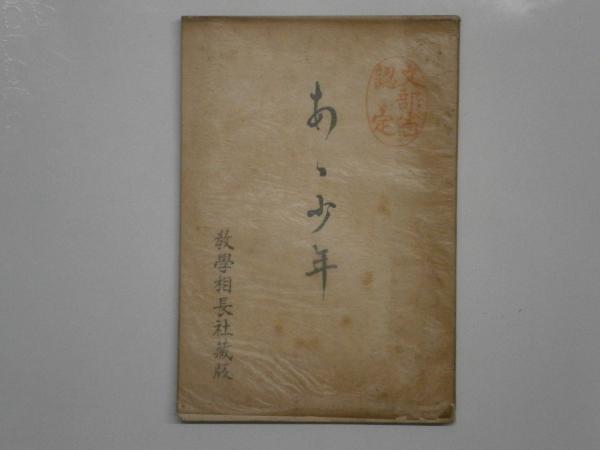 文部省
認定
あゝ少年
教學相長社蔵版